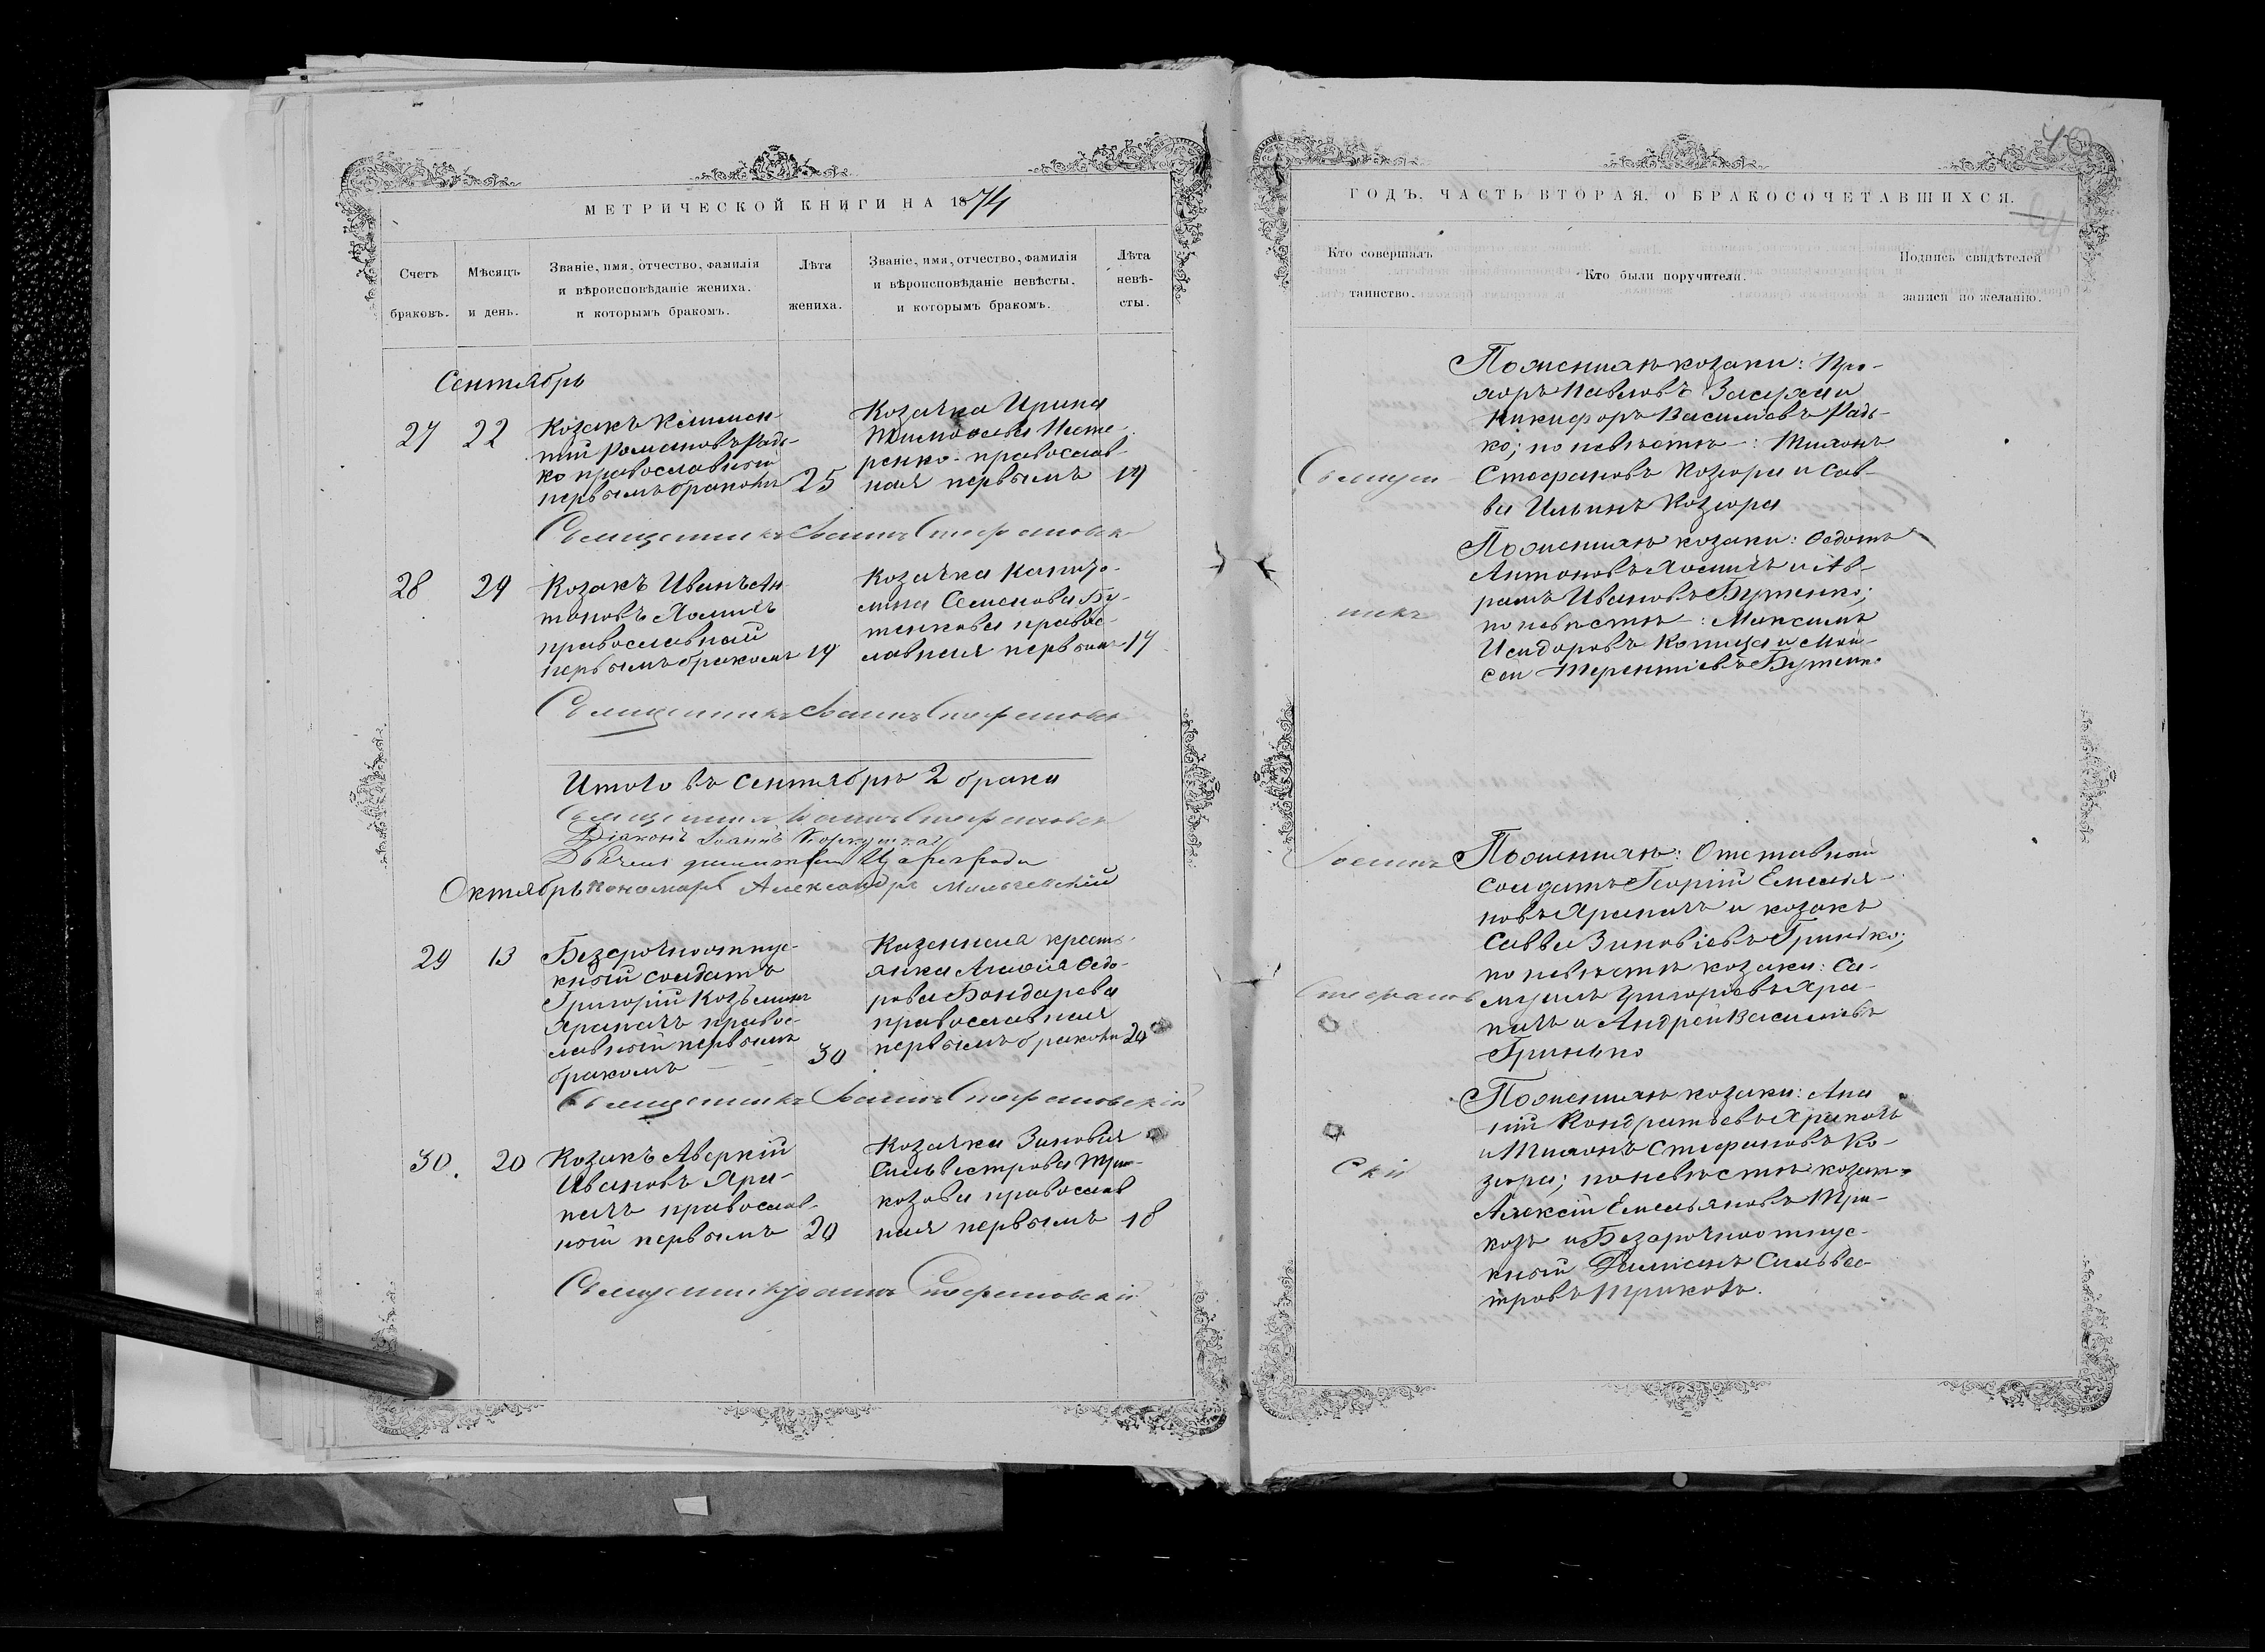 МЕТРИЧЕСКОЙ КНИГИ НА 1874
Счетъ браковъ.
Мѣсяцъ и день.
Званіе, имя, отчество, фамилія
и вѣроисповѣданіе жениха.
и которымъ бракомъ.
Лѣта
жениха.
Званіе, имя, отчество, фамилія
и вѣроисповѣданіе невѣсты.
и которымъ бракомъ.
Лѣта
невѣ-
сты.
Сентябрь
27 22
Козакъ Климен-
тій Романовъ Радь-
ко православный
первымъ бракомъ 25
Козачка Ирина
Тимофеева Несте-
ренко православ-
ная первымъ 19
Священникъ Іоаннъ Стефановск
28 29
Козакъ Иванъ Ан
тоновъ Хомичъ
православный
первымъ бракомъ 19
Козачка Капито-
лина Семенова Бу-
тенкова правос-
лавная первымъ 17
Священникъ Іоаннъ Стефановск
Итого въ Сентябрѣ 2 брака
Священникъ Іоаннъ Стефановск
Діаконъ Іоаннъ
Октябрь Пономарь Александръ
29 13
Безсрочноотпус-
кный солдатъ
Григорій Козьминъ
Храпачъ правос-
лавный первымъ
бракомъ 30
Казенная кресть-
янка Агафія Ѳедо-
рова Бондарева
православная
первымъ бракомъ 20
Священникъ Іоаннъ Стефановскій
30. 20
Козакъ Аверкій
Ивановъ Хра-
пачъ православ-
ный первымъ 20
Козачка Зиновія
Сильвестрова Три-
козова православ
ная первымъ 18
Священникъ Іоаннъ Стефановскій
40
ГОДЪ, ЧАСТЬ ВТОРАЯ, О БРАКОСОЧЕТАВШИХСЯ.
Кто совершалъ
таинство.
Кто были поручители.
Подпись свидѣтелей
записи по желанію.
Священ
никъ
Іоаннъ
Стефанов
скій
По женихѣ козаки: Про-
хоръ Павловъ и
Никифоръ Васильевъ Радь-
ко; по невѣстѣ: Тихонъ
Стефановъ Козюра и Сав-
ва Ильинъ Козюра
По женихѣ козаки: Ѳедотъ
Антоновъ Хомичъ и Ав-
рамъ Ивановъ Бутенко;
по невѣстѣ: Максимъ
Исидоровъ Копица и Мои-
сей Терентіевъ Бутенко
По женихѣ: Отставной
солдатъ Георгій Емелья-
новъ Храпачъ и козакъ
Савва Зиновіевъ Гринько;
по невѣстѣ козаки: Са-
муилъ Григоріевъ Хра-
пачъ и Андрей Васильевъ
Гринько
По женихѣ козаки: Ана
ній Кондратьевъ Храпачъ
и Тихонъ Стефановъ Ко-
зюра; по невѣстѣ козакъ
Алексій Емельяновъ Три-
козъ и Безсрочноотпус-
кный Даміанъ Сильвес-
тровъ Трикозъ.